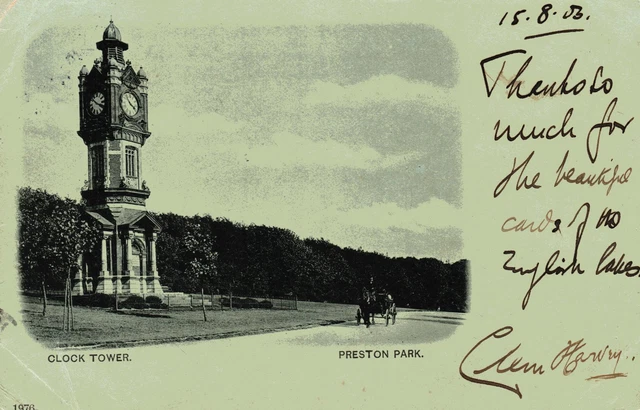 15.8.03.
Thanks so
much for
the beautiful
cards of the
English lakes
Clem Harvey.
CLOCK TOWER.
PRESTON PARK.
1976